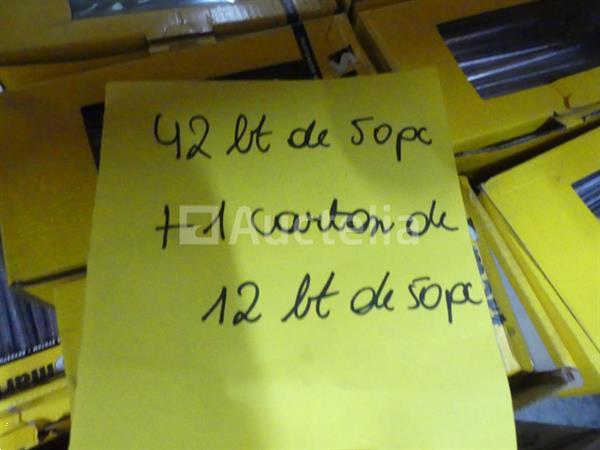 42 bt de 50pc
+ 1 carton de
12 bt de 50pc
Auctelia
mar